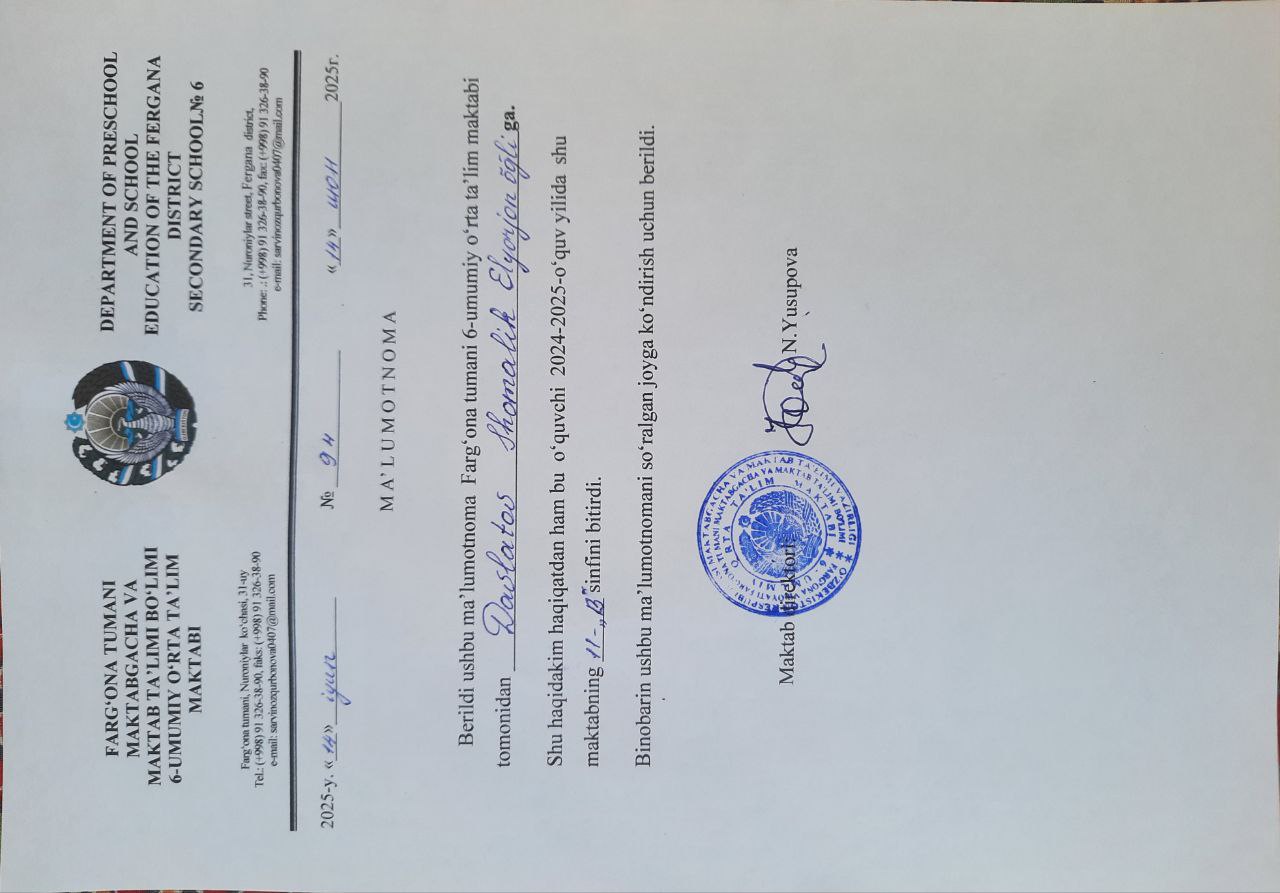 FARG‘ONA TUMANI
MAKTABGACHA VA
MAKTAB TA’LIMI BO‘LIMI
6-UMUMIY O‘RTA TA’LIM
MAKTABI
Farg'ona tumani, Nuroniylar ko‘chasi, 31-uy
Tel.: (+998) 91 326-38-90, faks: (+998) 91 326-38-90
e-mail: sarvinozqurbonova0407@mail.com
DEPARTMENT OF PRESCHOOL
AND SCHOOL
EDUCATION OF THE FERGANA
DISTRICT
SECONDARY SCHOOL№ 6
31, Nuroniylar street, Fergana district,
Phone: .: (+998) 91 326-38-90, fax: (+998) 91 326-38-90
e-mail: sarvinozqurbonova0407@mail.com
2025-y. «14» iyun № 94 «14» июн 2025г.
MA’LUMOTNOMA
Berildi ushbu ma’lumotnoma Farg‘ona tumani 6-umumiy o‘rta ta’lim maktabi
tomonidan Davlatov Shomalik Elyorjon õgli ga.
Shu haqidakim haqiqatdan ham bu o‘quvchi 2024-2025-o‘quv yilida shu
maktabning 11-„B” sinfini bitirdi.
Binobarin ushbu ma’lumotnomani so‘ralgan joyga ko‘ndirish uchun berildi.
Maktab direktori: N.Yusupova